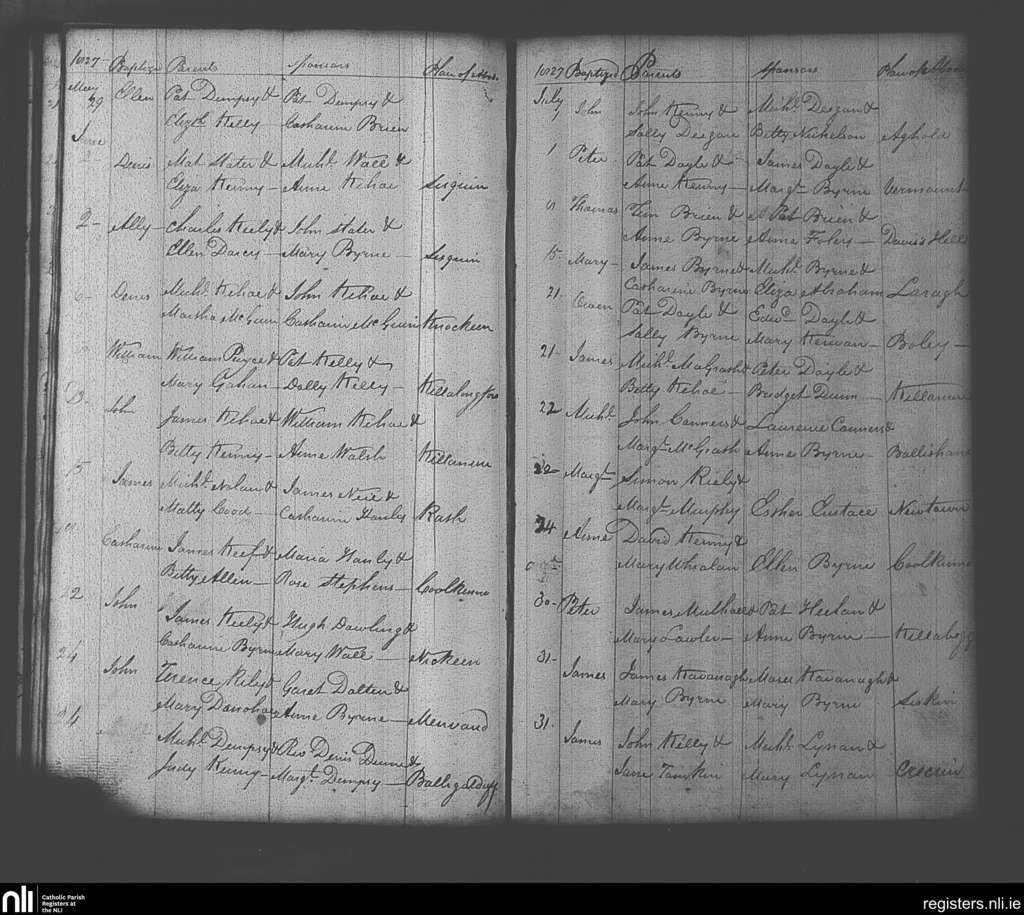 1827 Baptized Parents Sponsors Place of Abode
May 29 Ellen Pat Dempsy & Pat Dempsy &
Elizth Kelly — Catharine Brien
June
2 Denis Mat Slater & Michl. Wall &
Eliza Kenny — Anne Kehoe Sisguin
2 — Ally — Charles Keely & John Slater &
Ellen Darcy — Mary Byrne — Sisguin
6 — Denis Michl. Kehoe & John Kehoe &
Martha McGuin Catharine McGuin Knockeen
William William Pierce & Pat Kelly &
Mary Gahan — Dolly Kelly —
13 John James Kehoe & William Kehoe &
Betty Kenny — Anne Walsh Killanure
15 James Michl. Nolan & James Neil &
Matty Cood — Catharine Hanly Rath
Catharine James Keef & Maria Hanly &
Betty Allen — Rose Stephens — Coolkenno
22 John James Keely & Hugh Dowling &
Catharine Byrne Mary Wall — Nickeen
24 John Terence Kily & Garet Dalten &
Mary Donohoe Anne Byrne —
24 Michl. Dempsy & Rev Denis Dunne &
Judy Kenny — Margt. Dempsy —
1827 Baptized Parents Sponsors Place of Abode
July
John John Kenny & Michl. Deegan &
Sally Deegan Betty Nickelson Aghold
1 Peter Pat Doyle & James Doyle &
Anne Kenny — Margt. Byrne Vermount
Thomas Tim Brien & Pat Brien &
Anne Byrne Anne Foley — Davis's Hill
15 — Mary — James Byrne & Michl. Byrne &
Catharine Byrne Eliza Abraham Laragh
21 — Owen Pat Doyle & Edwd Doyle &
Sally Byrne Mary Kerwan — Boley —
21 — James Michl. McGrath & Peter Doyle &
Betty Kehoe — Bridget Dunn — Killanure
22 Michl. John Conners & Laurence Conners &
Margt. McGrath Anne Byrne —
22 Margt Simon Riely &
Margt. Murphy Esther Eustace Newtown
24 Anne David Kenny &
Mary Whealan Ellen Byrne Coolkenno
30 — Peter James Mulhall & Pat Heelan &
Mary Lawler — Anne Byrne —
31 — James James Kavanagh Moses Kavanagh &
Mary Byrne Mary Byrne Siskin
31 — James John Kelly & Michl. Lynan &
Jane Tomkin Mary Lynan Crecrin
nli Catholic Parish
Registers at
the NLI
registers.nli.ie